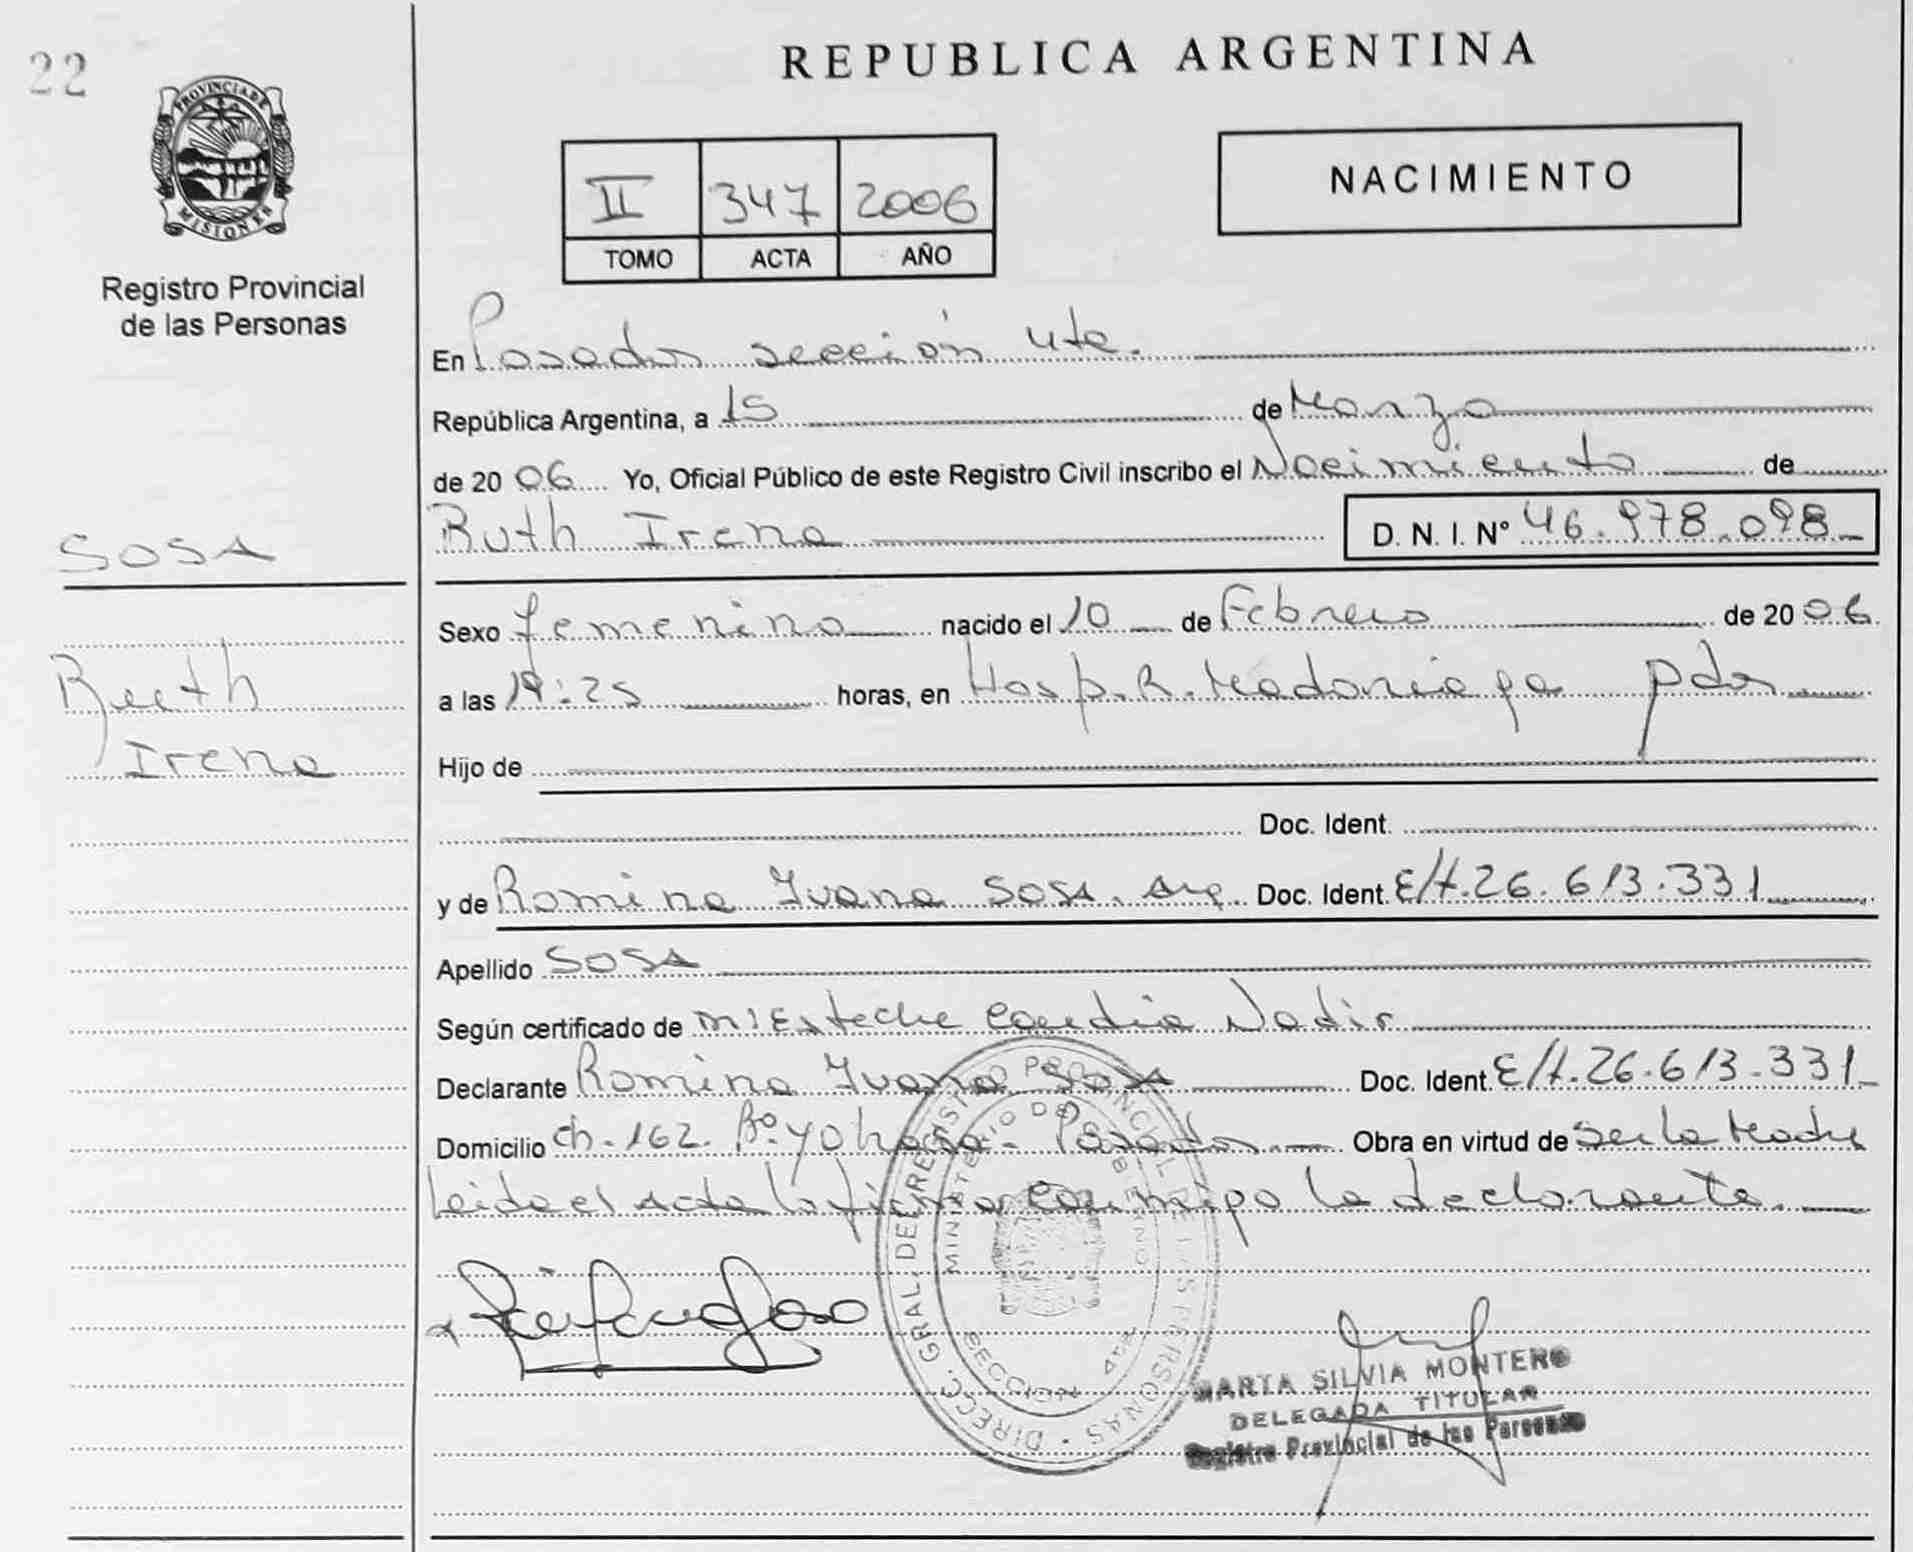 22
REPUBLICA ARGENTINA
PROVINCIA DE
MISIONES
Registro Provincial
de las Personas
II 347 2006
TOMO ACTA AÑO
NACIMIENTO
En Posadas sección 4ta.
República Argentina, a 15 de Marzo
de 20 06 Yo, Oficial Público de este Registro Civil inscribo el Nacimiento de
SOSA
Ruth Irene D. N. I. Nº 46.978.098
Sexo femenino nacido el 10 de Febrero de 20 06
Ruth
Irene
a las 19:25 horas, en Hosp. R. Madariaga Pdas
Hijo de
Doc. Ident.
y de Romina Ivana SOSA. Arg. Doc. Ident. E/t. 26.613.331
Apellido SOSA
Según certificado de Nadir
Declarante Romina Ivana SOSA Doc. Ident. E/t. 26.613.331
Domicilio Ch. 162. Bº Yohasa - Posadas Obra en virtud de Ser la Madre
Leida el Acta la firma conmigo la declarante.
DIRECC. GRAL. DEL REGISTRO PROVINCIAL DE LAS PERSONAS
MINISTERIO DE GOBIERNO
SECCION 4ta
MARTA SILVIA MONTERO
DELEGADA TITULAR
Registro Provincial de las Personas